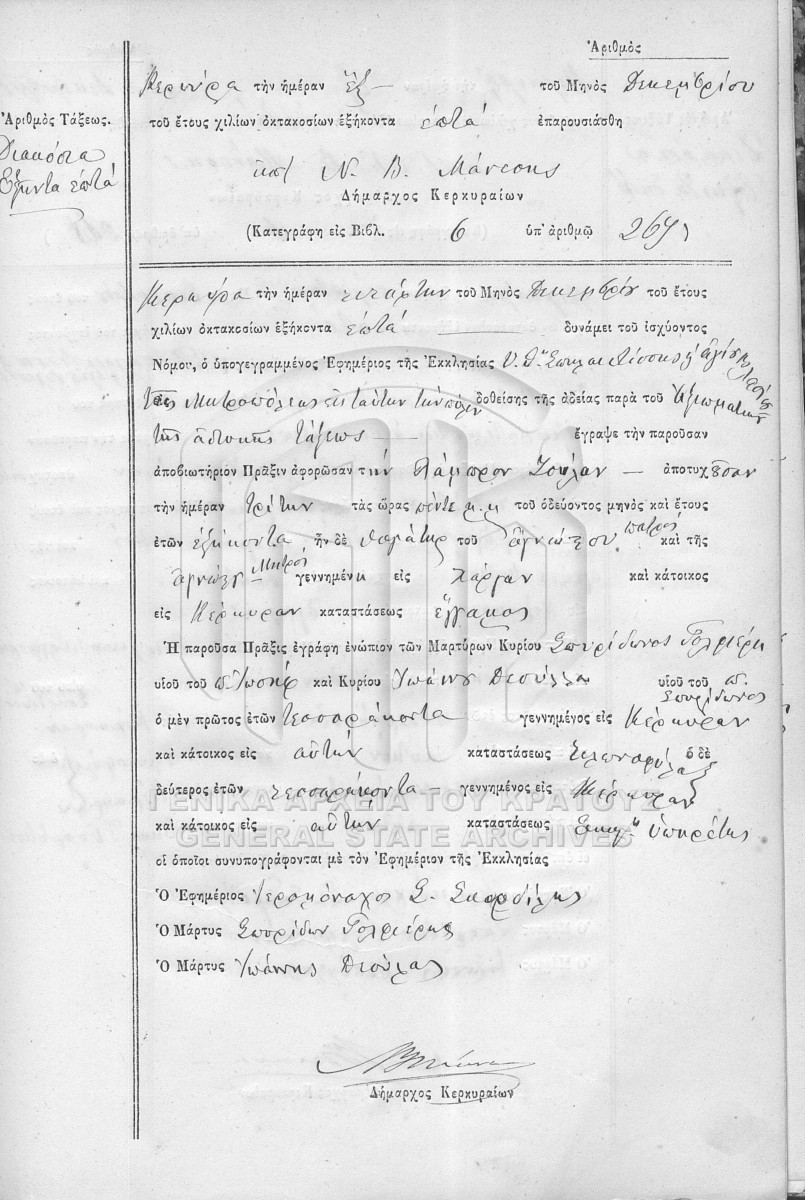 Ἀριθμὸς
Κερκύρα τὴν ἡμέραν ἕξ τοῦ Μηνὸς Δεκεμβρίου
Ἀριθμὸς Τάξεως.
τοῦ ἔτους χιλίων ὀκτακοσίων ἑξήκοντα ἑπτά ἐπαρουσιάσθη
Διακόσια
Ἑξῆντα ἑπτά
Ν. Β. Μάνεσης
Δήμαρχος Κερκυραίων
(Κατεγράφη εἰς Βιβλ. 6 ὑπ' ἀριθμῷ 267)
Κερκύρα τὴν ἡμέραν τετάρτην τοῦ Μηνὸς Δεκεμβρίου τοῦ ἔτους
χιλίων ὀκτακοσίων ἑξήκοντα ἑπτά δυνάμει τοῦ ἰσχύοντος
Νόμου, ὁ ὑπογεγραμμένος Ἐφημέριος τῆς Ἐκκλησίας
τῆς Μητροπόλεως εἰς ταύτην τὴν πόλιν δοθείσης τῆς ἀδείας παρὰ τοῦ Ἀξιωματικοῦ
τῆς ἀστυκῆς τάξεως ἔγραψε τὴν παροῦσαν
ἀποβιωτήριον Πρᾶξιν ἀφορῶσαν τὴν Λάμπρον Ζούλαν ἀποτυχοῦσαν
τὴν ἡμέραν τρίτην τὰς ὥρας πέντε μ.μ. τοῦ ὁδεύοντος μηνὸς καὶ ἔτους
ἐτῶν ἑξήκοντα ἦν δὲ θυγάτηρ τοῦ ἀγνώστου πατρός καὶ τῆς
ἀγνώστου Μητρός γεννημένη εἰς Πάργαν καὶ κάτοικος
εἰς Κέρκυραν καταστάσεως ἔγγαμος
Ἡ παροῦσα Πρᾶξις ἐγράφη ἐνώπιον τῶν Μαρτύρων Κυρίου Σπυρίδωνος
υἱοῦ τοῦ π. Ἰωσήφ καὶ Κυρίου Ἰωάννου υἱοῦ τοῦ π. Σπυρίδωνος
ὁ μὲν πρῶτος ἐτῶν τεσσαράκοντα γεννημένος εἰς Κέρκυραν
καὶ κάτοικος εἰς αὐτήν καταστάσεως ὁ δὲ
δεύτερος ἐτῶν τεσσαράκοντα γεννημένος εἰς Κέρκυραν
ΓΕΝΙΚΑ ΑΡΧΕΙΑ ΤΟΥ ΚΡΑΤΟΥΣ
καὶ κάτοικος εἰς αὐτήν καταστάσεως ὑπηρέτης
GENERAL STATE ARCHIVES
οἱ ὁποῖοι συνυπογράφονται μὲ τὸν Ἐφημέριον τῆς Ἐκκλησίας
Ὁ Ἐφημέριος Ἱερομόναχος Σ.
Ὁ Μάρτυς Σπυρίδων
Ὁ Μάρτυς Ἰωάννης
Δήμαρχος Κερκυραίων